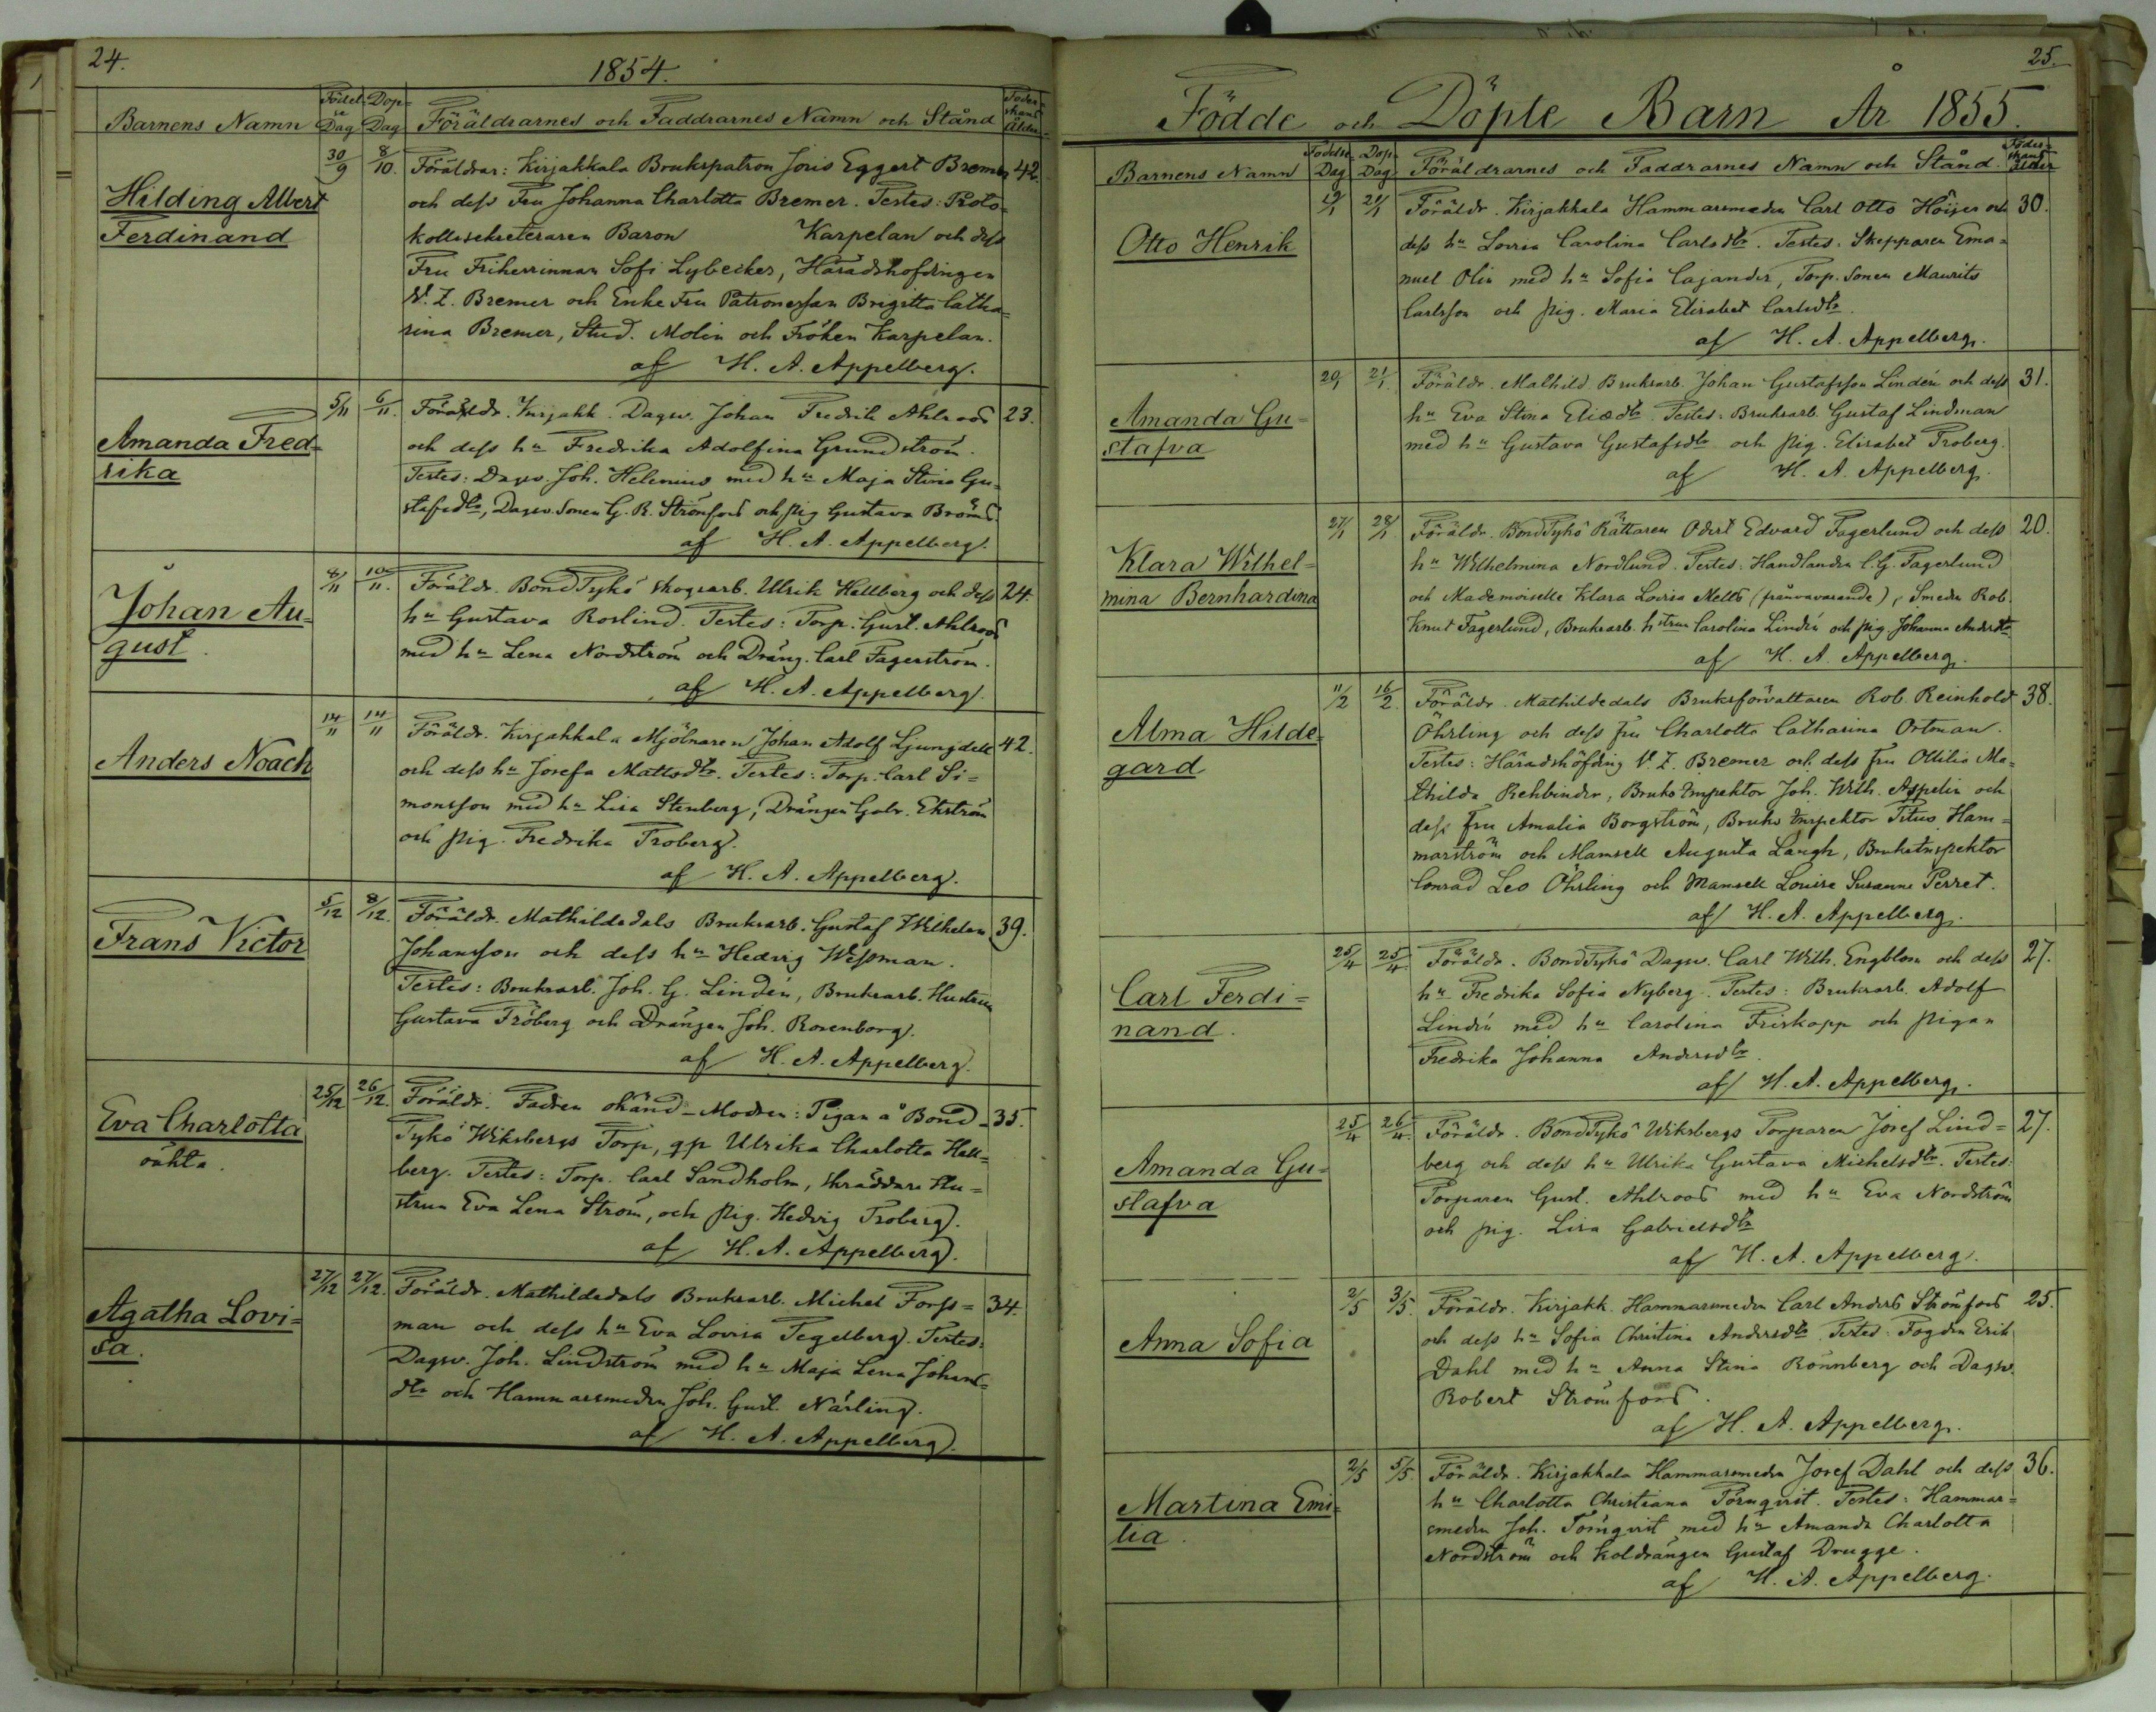 24.
1854.
Barnens Namn
Födel-
se
Dag
Dop-
Dag
Föräldrarnes och Faddrarnes Namn och Stånd
Föder-
skans
Ålder
Hilding Albert
Ferdinand
30/9
8/10.
Föräldrar: Kirjakkala Brukspatron Joris Eggert Bremer
42.
och dess Fru Johanna Charlotta Bremer. Testes: Proto-
kollsekreteraren Baron Karpelan och dess
Fru Friherrinnan Sofi Lybecker, Häradshöfdingen
V. Z. Bremer och Enke Fru Patronessan Brigitta Catha-
rina Bremer, Stud. Molin och Fröken Karpelan.
af H. A. Appelberg.
Amanda Fred-
rika
5/11
6/11.
Föräldr. Kirjakk. Dagsv. Johan Fredrik Ahlroos
23.
och dess hu Fredrika Adolfina Grundström.
Testes: Dagsv. Joh. Helenius med hu Maja Stina Gu-
stafsdtr, Dagsv. Sonen G. R. Strömfors och pig Gustava Broms.
af H. A. Appelberg.
Johan Au-
gust.
8/11
10/11.
Föräldr. BondTykö skogsarb. Ulrik Hellberg och dess
24.
hu Gustava Roslind. Testes: Torp. Gust. Ahlroos
med hu Lena Nordström och Dräng. Carl Fagerström.
af H. A. Appelberg.
Anders Noach
14/11
14/11
Föräldr. Kirjakkala Mjölnaren Johan Adolf Ljungdell
42.
och dess hu Josefa Mattsdtr. Testes: Torp. Carl Si-
monsson med hu Lisa Stenberg, Drängen Gabr. Ekström
och pig. Fredrika Froberg.
af H. A. Appelberg.
Frans Victor
5/12
8/12.
Föräldr. Mathildedals Bruksarb. Gustaf Wilhelm
39.
Johansson och dess hu Hedvig Wessman.
Testes: Bruksarb. Joh. G. Lindén, Bruksarb. Hustrun
Gustava Fröberg och Drängen Joh. Rosenborg.
af H. A. Appelberg.
Eva Charlotta
oäkta.
25/12
26/12.
Föräldr. Fadren okänd - Modren: Pigan å Bond-
35.
Tykö Wiksbergs Torp, qp Ulrika Charlotta Hell-
berg. Testes: Torp. Carl Sandholm, skräddare Hu-
strun Eva Lena Ström, och pig. Hedvig Froberg.
af H. A. Appelberg.
Agatha Lovi-
sa.
27/12
27/12.
Föräldr. Mathildedals Bruksarb. Michel Forss-
34.
man och dess hu Eva Lovisa Tegelberg. Testes:
Dagsv. Joh. Lindström med hu Maja Lena Johans-
dtr och Hammarsmeden Joh. Gust. Närling.
af H. A. Appelberg.
25.
Födde och Döpte Barn År 1855.
Barnens Namn
Födelse
Dag
Dop-
Dag
Föräldrarnes och Faddrarnes Namn och Stånd.
Föder-
skans
ålder
Otto Henrik
19/1
21/1
Föräldr. Kirjakkala Hammarsmeden Carl Otto Höijer och
30.
dess hu Lovisa Carolina Carlsdtr. Testes: Skepparen Ema-
nuel Olin med hu Sofia Cajander, Torp. Sonen Maurits
Carlsson och pig. Maria Elisabet Carlsdtr.
af H. A. Appelberg.
Amanda Gu-
stafva
20/1
21/1.
Föräldr. Mathild. Bruksarb. Johan Gustafsson Lindén och dess
31.
hu Eva Stina Eliædtr. Testes: Bruksarb. Gustaf Lindman
med hu Gustava Gustafsdtr och pig. Elisabet Froberg.
af H. A. Appelberg.
Klara Wilhel-
mina Bernhardina
27/1
28/1
Föräldr. BondTykö Rättaren Odert Edvard Fagerlund och dess
20.
hu Wilhelmina Nordlund. Testes: Handlanden C. G. Fagerlund
och Mademoiselle Klara Lovisa Mellb (frånvarande), Smeden Rob.
Knut Fagerlund, Bruksarb. hstrun Carolina Lindén och pig Johanna Andersdtr
af H. A. Appelberg.
Alma Hilde-
gard
11/2
16/2.
Föräldr. Mathildedals Bruksförvaltaren Rob. Reinhold
38.
Öhrling och dess fru Charlotta Catharina Ortman.
Testes: Häradshöfding V. Z. Bremer och dess fru Ottilia Ma-
thilda Rehbinder, Bruks Inspektor Joh. Wilh. Aspelin och
dess fru Amalia Borgström, Bruks Inspektor Titus Ham-
marström och Mamsell Augusta Langh, Bruksinspektor
Conrad Leo Öhrling och Mamsell Louise Susanne Perret.
af H. A. Appelberg.
Carl Ferdi-
nand.
25/4
25/4.
Föräldr. BondTykö Dagsv. Carl Wilh. Engblom och dess
27.
hu Fredrika Sofia Nyberg. Testes: Bruksarb. Adolf
Lindén med hu Carolina Friskopp och pigan
Fredrika Johanna Andersdtr.
af H. A. Appelberg.
Amanda Gu-
stafva
25/4
26/4.
Föräldr. BondTykö Wiksbergs Torparen Josef Lind-
27.
berg och dess hu Ulrika Gustava Michelsdtr. Testes:
Torparen Gust. Ahlroos med hu Eva Nordström
och pig. Lisa Gabrielsdtr
af H. A. Appelberg.
Anna Sofia
2/5
3/5.
Föräldr. Kirjakk. Hammarsmeden Carl Anders Strömfors
25.
och dess hu Sofia Christina Andersdtr Testes: Fogden Erik
Dahl med hu Anna Stina Rönnberg och Dagsv.
Robert Strömfors.
af H. A. Appelberg.
Martina Emi-
lia.
2/5
5/5.
Föräldr. Kirjakkala Hammarsmeden Josef Dahl och dess
36.
hu Charlotta Christiana Törnqvist. Testes: Hammar-
smeden Joh. Törnqvist med hu Amanda Charlotta
Nordström och koldrängen Gustaf Drugge.
af H. A. Appelberg.